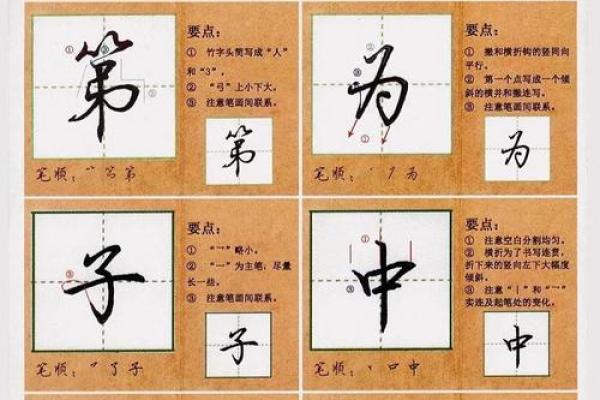 第
①
③
②
要点：
① 竹字头简写成“人”
和“3”。
② “弓”上小下大。
③ 注意笔画间联系。
第
笔顺： 第
为
①
②
③
①
要点：
① 撇和横折钩的竖同向
平行。
② 第一个点写成一个倾
斜的横并和撇连写。
③ 注意笔画间联系。
为
笔顺： 为
子
③
要点：
① “乛”略小。
② “一”为主笔，尽量
长一些。
③ 注意笔画间联系。
子
笔顺： 了 子
中
①
③
要点：
① 注意空白分割均匀。
② 横折为了书写连贯，
折下来的竖向左下大幅度
倾斜。
③ 注意“丨”和“乛”
实连及起笔处的变化。
中
笔顺： 丶 口 中